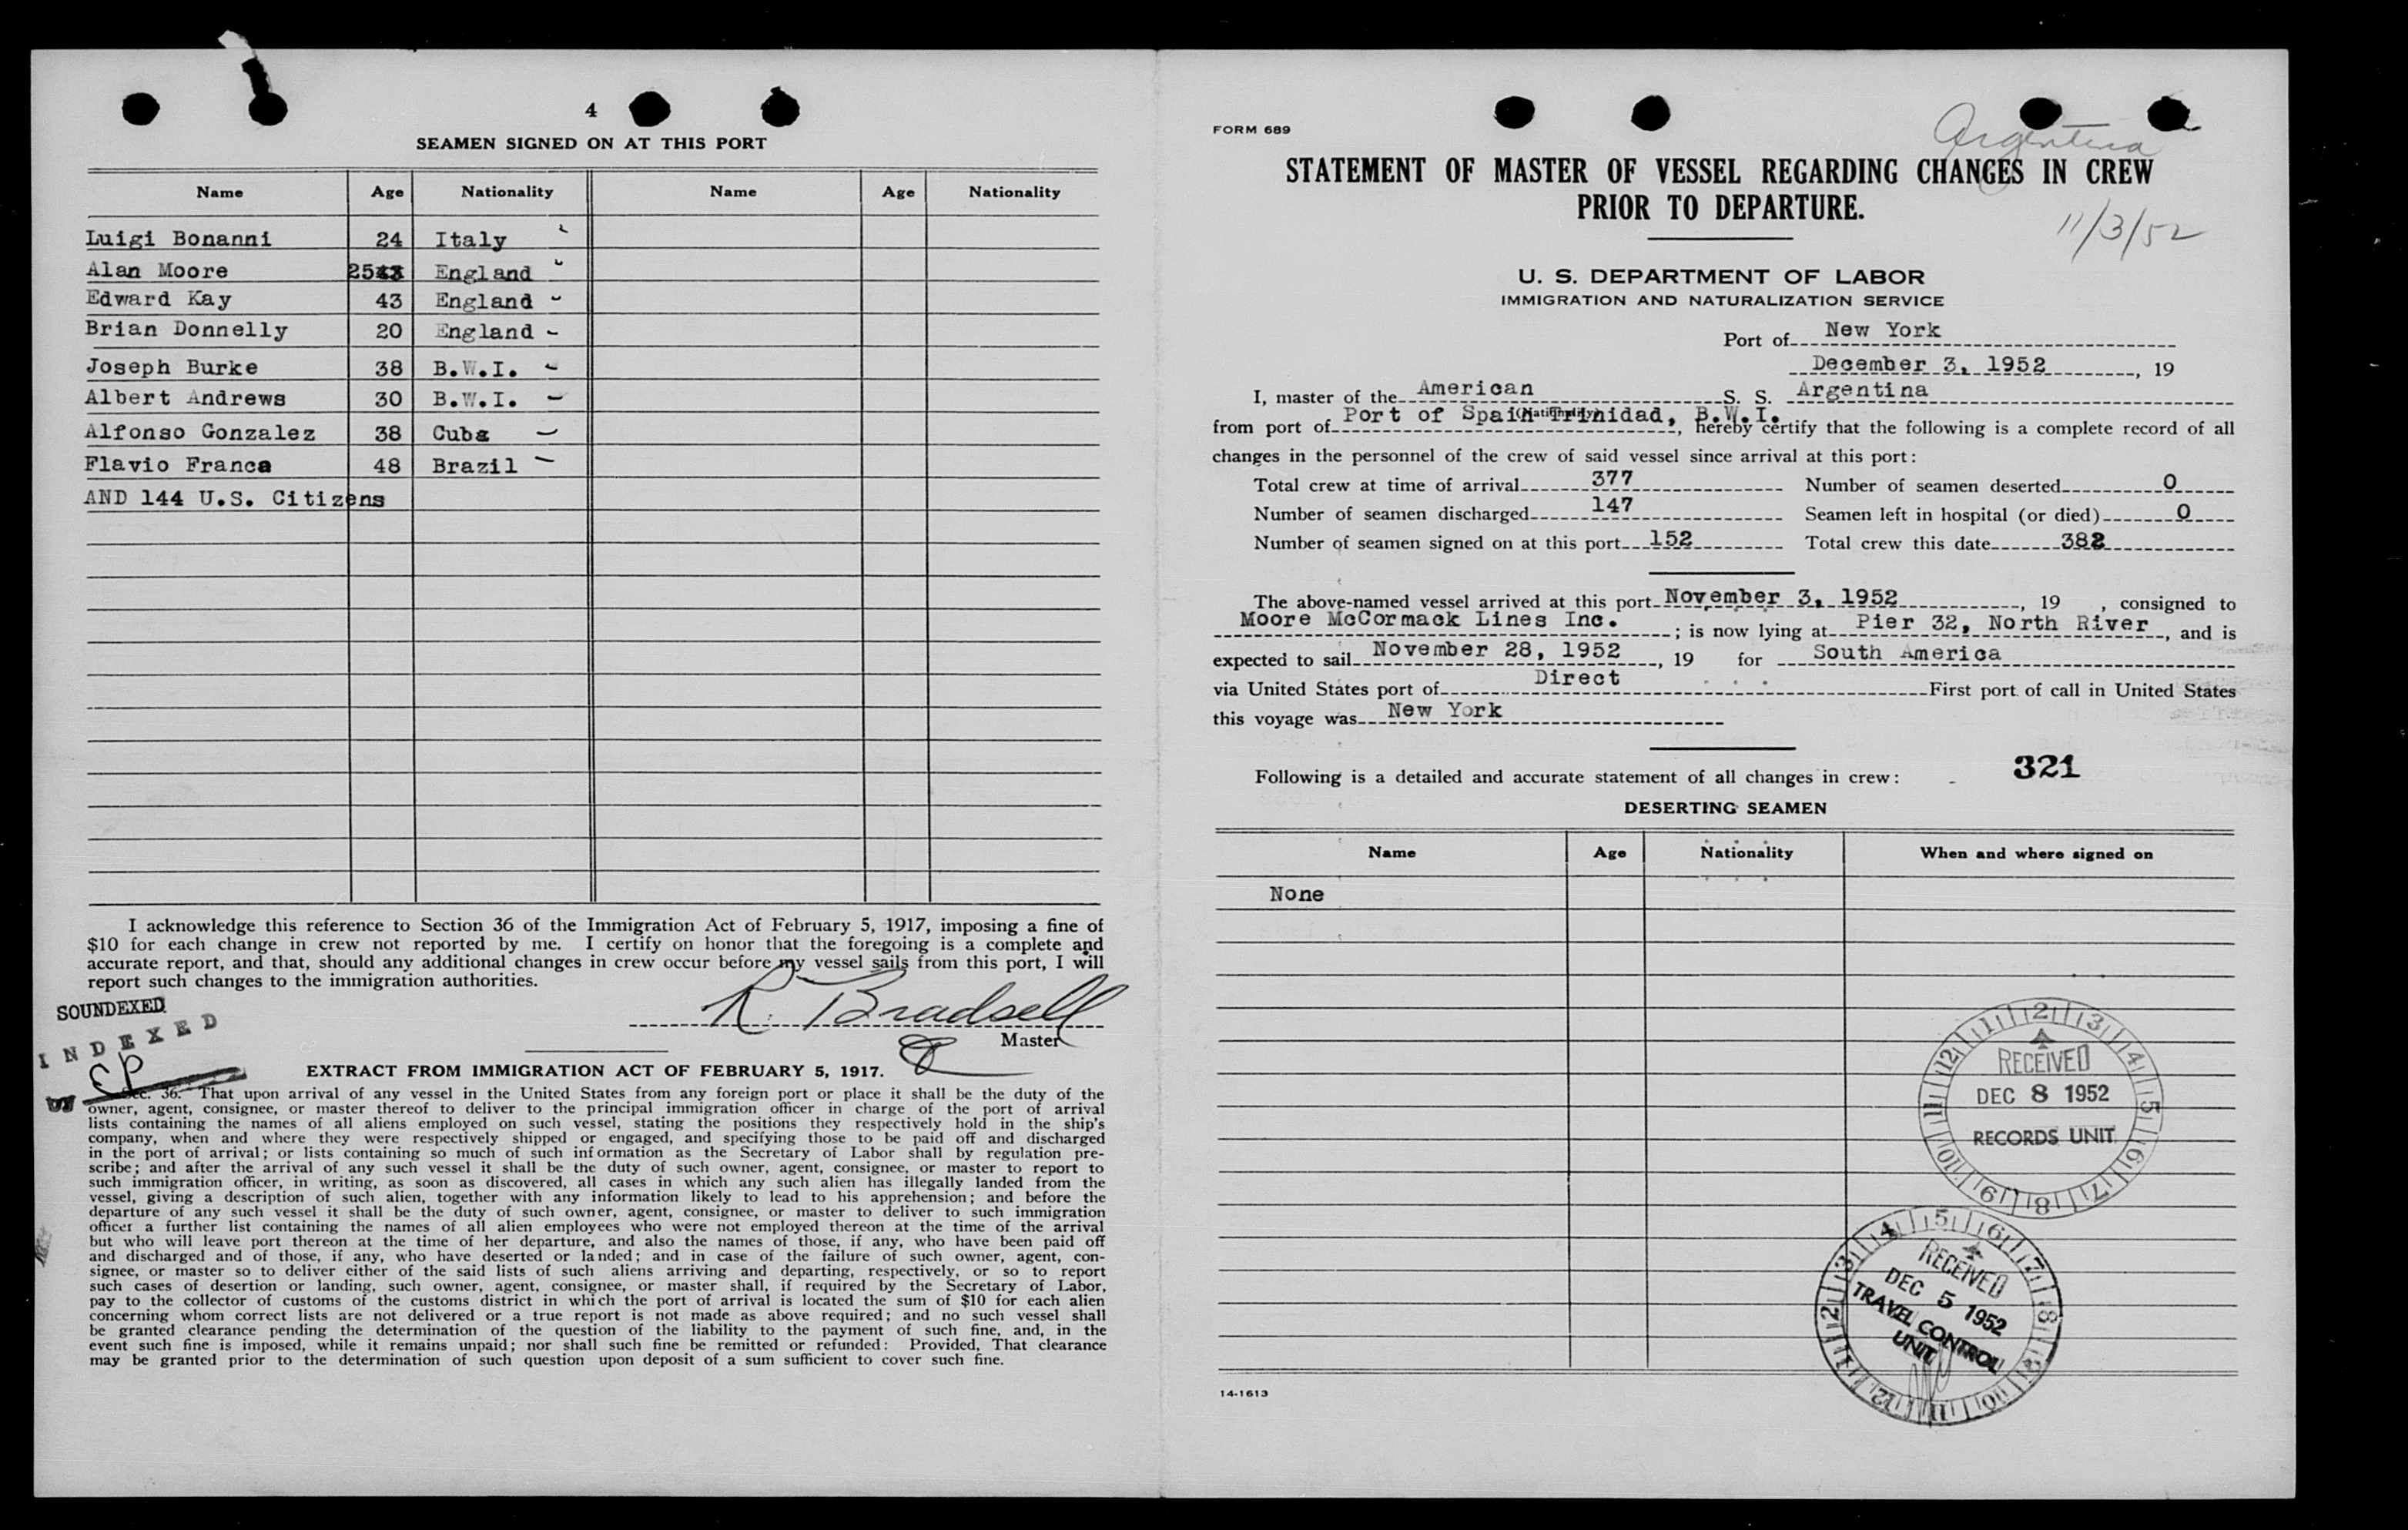 4
SEAMEN SIGNED ON AT THIS PORT
Name Age Nationality Name Age Nationality
Luigi Bonanni 24 Italy
Alan Moore 25 England
Edward Kay 43 England
Brian Donnelly 20 England
Joseph Burke 38 B.W.I.
Albert Andrews 30 B.W.I.
Alfonso Gonzalez 38 Cuba
Flavio Franca 48 Brazil
AND 144 U.S. Citizens
I acknowledge this reference to Section 36 of the Immigration Act of February 5, 1917, imposing a fine of
$10 for each change in crew not reported by me. I certify on honor that the foregoing is a complete and
accurate report, and that, should any additional changes in crew occur before my vessel sails from this port, I will
report such changes to the immigration authorities.
SOUNDEXED
INDEXED
CP
R. Bradsell
Master
EXTRACT FROM IMMIGRATION ACT OF FEBRUARY 5, 1917.
Sec. 36. That upon arrival of any vessel in the United States from any foreign port or place it shall be the duty of the
owner, agent, consignee, or master thereof to deliver to the principal immigration officer in charge of the port of arrival
lists containing the names of all aliens employed on such vessel, stating the positions they respectively hold in the ship's
company, when and where they were respectively shipped or engaged, and specifying those to be paid off and discharged
in the port of arrival; or lists containing so much of such information as the Secretary of Labor shall by regulation pre-
scribe; and after the arrival of any such vessel it shall be the duty of such owner, agent, consignee, or master to report to
such immigration officer, in writing, as soon as discovered, all cases in which any such alien has illegally landed from the
vessel, giving a description of such alien, together with any information likely to lead to his apprehension; and before the
departure of any such vessel it shall be the duty of such owner, agent, consignee, or master to deliver to such immigration
officer a further list containing the names of all alien employees who were not employed thereon at the time of the arrival
but who will leave port thereon at the time of her departure, and also the names of those, if any, who have been paid off
and discharged and of those, if any, who have deserted or landed; and in case of the failure of such owner, agent, con-
signee, or master so to deliver either of the said lists of such aliens arriving and departing, respectively, or so to report
such cases of desertion or landing, such owner, agent, consignee, or master shall, if required by the Secretary of Labor,
pay to the collector of customs of the customs district in which the port of arrival is located the sum of $10 for each alien
concerning whom correct lists are not delivered or a true report is not made as above required; and no such vessel shall
be granted clearance pending the determination of the question of the liability to the payment of such fine, and, in the
event such fine is imposed, while it remains unpaid; nor shall such fine be remitted or refunded: Provided, That clearance
may be granted prior to the determination of such question upon deposit of a sum sufficient to cover such fine.
FORM 689
Argentina
STATEMENT OF MASTER OF VESSEL REGARDING CHANGES IN CREW
PRIOR TO DEPARTURE.
11/3/52
U. S. DEPARTMENT OF LABOR
IMMIGRATION AND NATURALIZATION SERVICE
Port of New York
December 3, 1952, 19
I, master of the American S. S. Argentina
(Nationality)
from port of Port of Spain Trinidad, B.W.I., hereby certify that the following is a complete record of all
changes in the personnel of the crew of said vessel since arrival at this port:
Total crew at time of arrival 377 Number of seamen deserted 0
Number of seamen discharged 147 Seamen left in hospital (or died) 0
Number of seamen signed on at this port 152 Total crew this date 382
The above-named vessel arrived at this port November 3, 1952, 19 , consigned to
Moore McCormack Lines Inc.; is now lying at Pier 32, North River, and is
expected to sail November 28, 1952, 19 for South America
via United States port of Direct First port of call in United States
this voyage was New York
Following is a detailed and accurate statement of all changes in crew: 321
DESERTING SEAMEN
Name Age Nationality When and where signed on
None
1 2 3 4 5 6 7 8 9 10 11 12
RECEIVED
DEC 8 1952
RECORDS UNIT
RECEIVED
DEC 5 1952
TRAVEL CONTROL
UNIT
14-1613